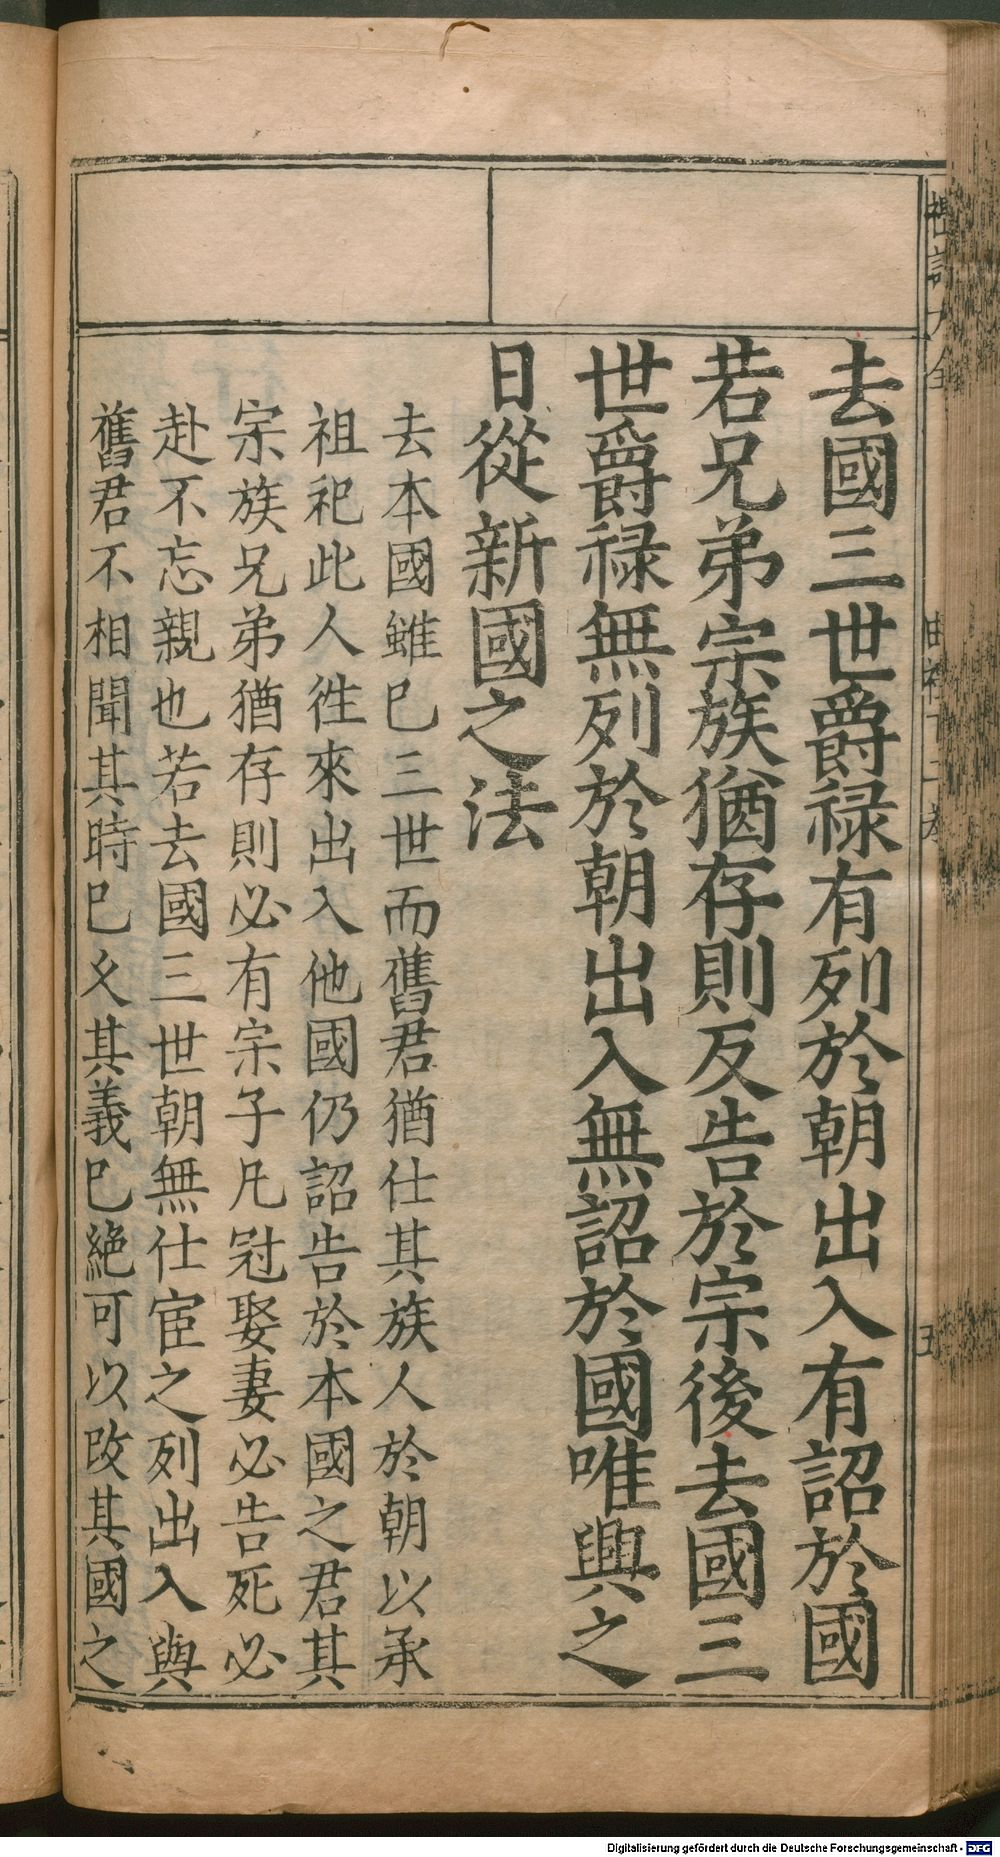 去國三世爵禄有列於朝出入有詔於國
若兄弟宗族猶存則反告於宗後去國三
世爵禄無列於朝出入無詔於國唯興之
日從新國之法
去本國雖巳三世而舊君猶仕其族人於朝以承
祖祀此人徃來出入他國仍詔告於本國之君其
宗族兄弟猶存則必有宗子凡冠娶妻必告死必
赴不忘親也若去國三世朝無仕宦之列出入與
舊君不相聞其時巳乆其義巳絶可以改其國之
Digitalisierung gefördert durch die Deutsche Forschungsgemeinschaft - DFG